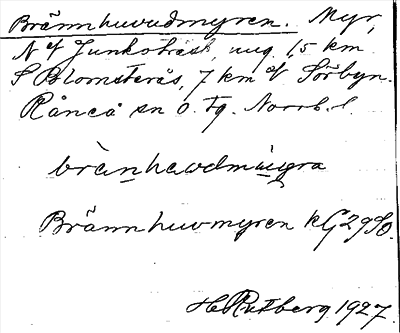 Brännhuvudmyren. Myr,
N of Junkoträsk, ung. 1,5 km
S Blomsterås, 7 km of Sörbyn.
Råneå sn o. tg. Norrb. l.
Brännhuvmyren kG29SO.
H. Rutberg 1927.